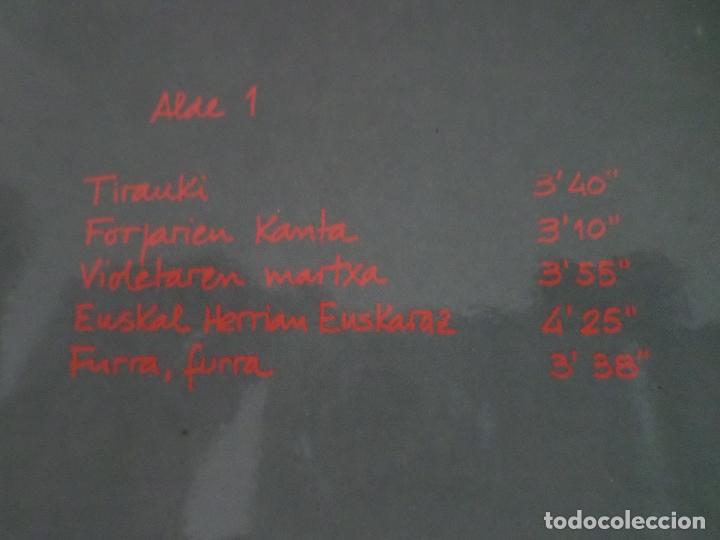 Alde 1
Tirauki 3'40"
Forjarien Kanta 3'10"
Violetaren martxa 3'55"
Euskal Herrian Euskaraz 4'25"
Furra, furra 3'38"
todocoleccion.net